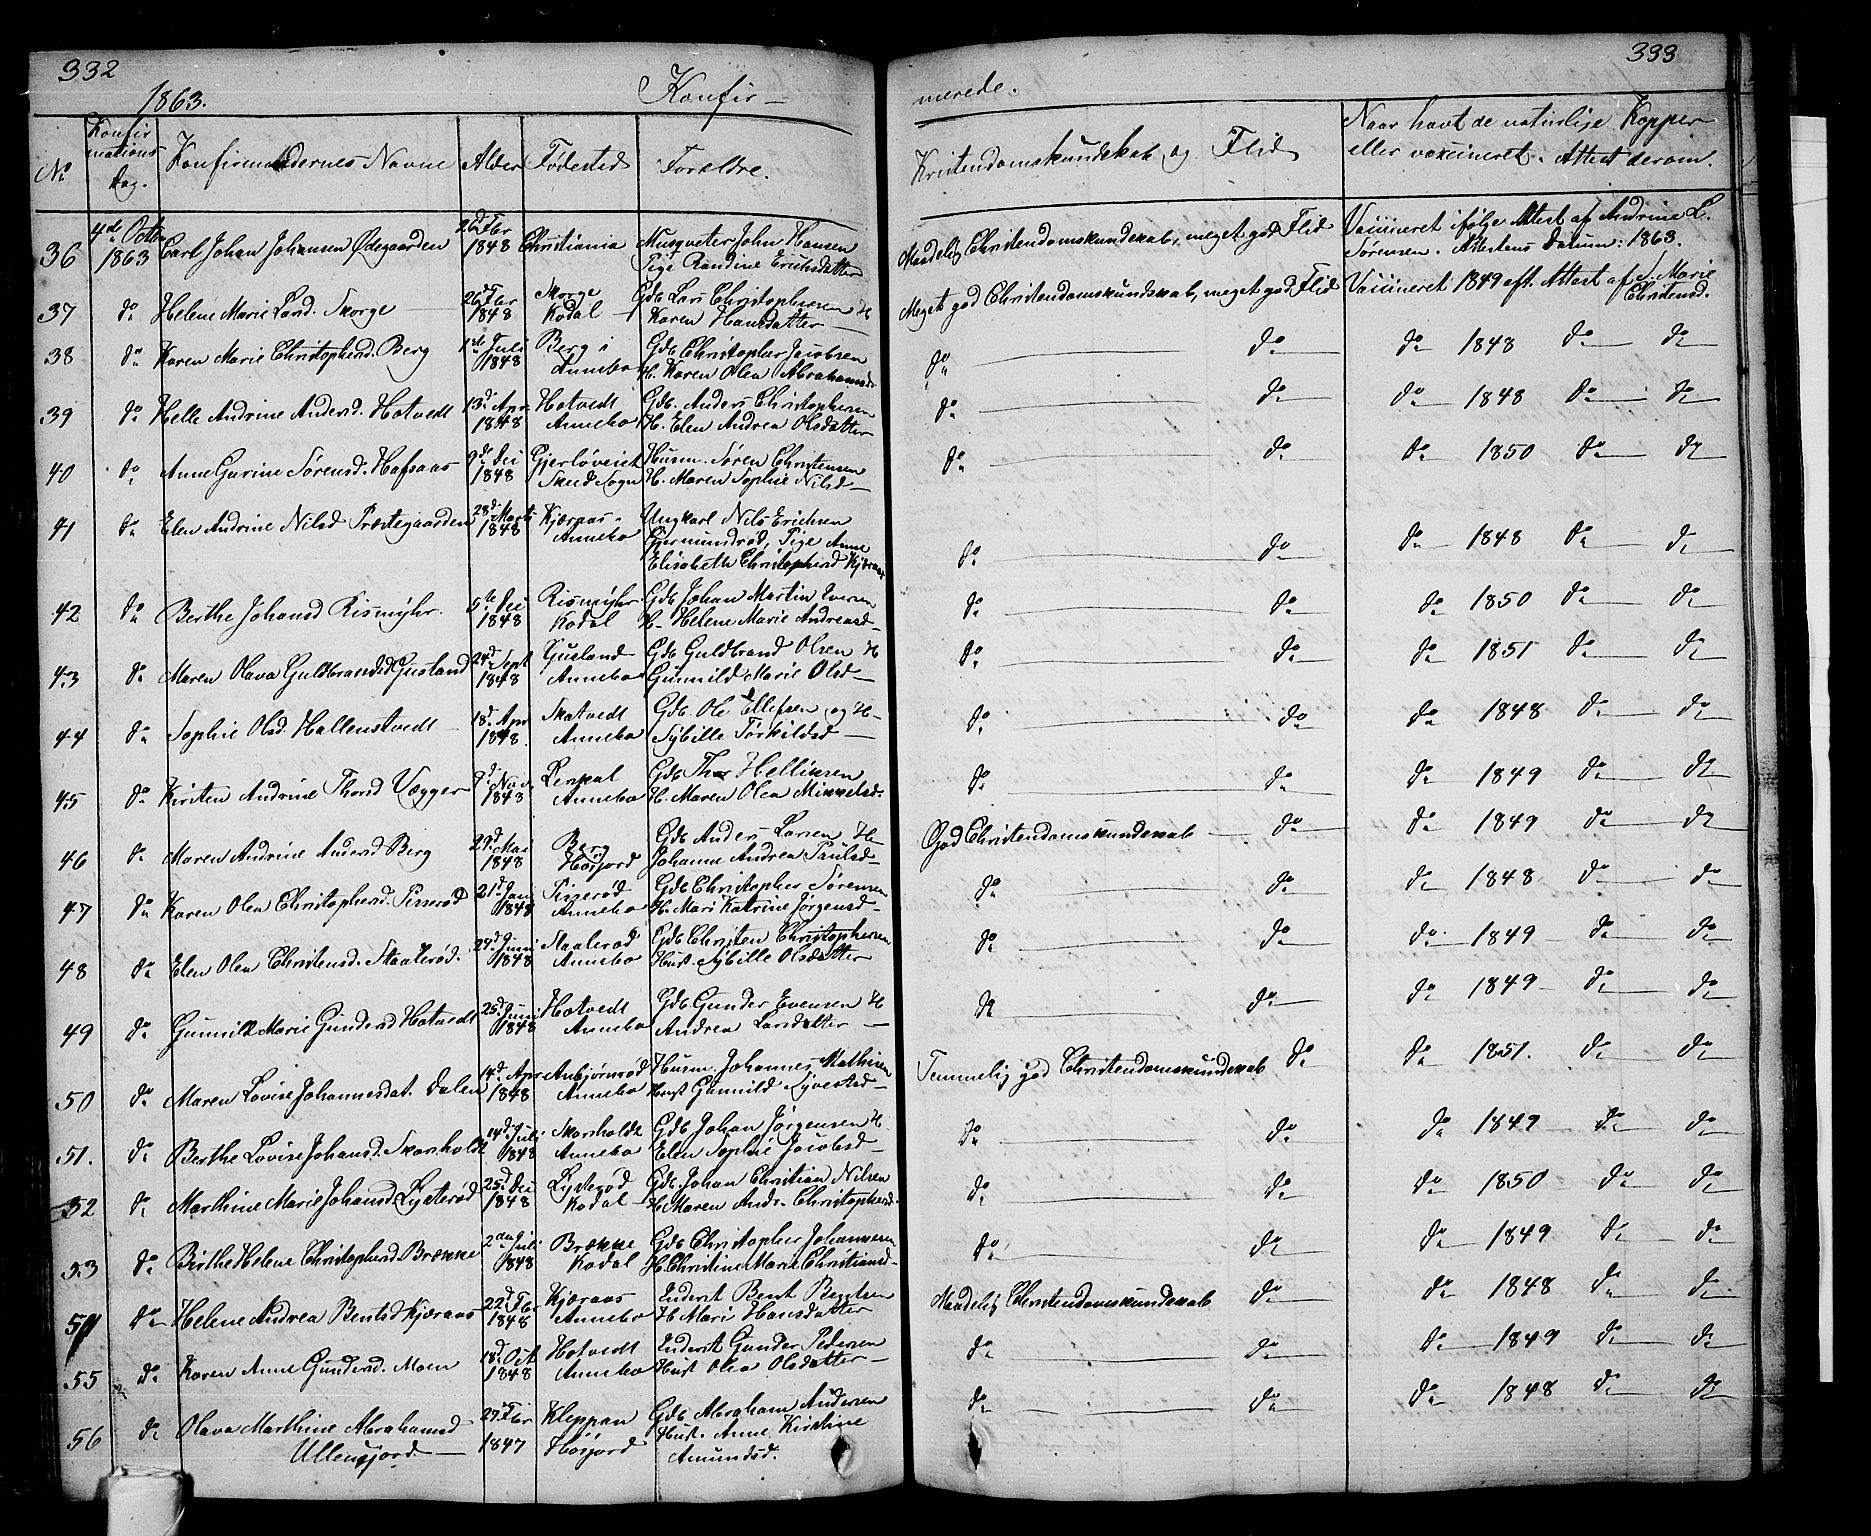 332
1863.
Konfir-
No
Konfir
mations
Dag.
Konfirmandernes Navne
Alder
Fødested
Foreldre.
36 4de Octbr 1863 Carl Johan Johansen Ødegaarden 26d Fbr 1848 Christiania Musqveter John Hansen
Pige Randine Erichsdatter
37 do Helene Marie Larsd. Skorge 26d Fbr 1848 Skorge Kodal Gdb. Lars Christophersen H.
Karen Hansdatter
38 do Karen Marie Christophersd. Berg 1ste Juli 1848 Berg i Annebo Gdb. Christopher Jacobsen
H. Karen Olea Abrahamsd.
39 do Helle Andrine Andersd. Hotvedt 13d Apr 1848 Hotvedt Annebo Gdb. Anders Christophersen
H. Elen Andrea Olsdatter
40 do Anne Gurine Sørensd. Hafsaas 9de Dei 1848 Gjerløveiet Skeed Sogn Husm. Søren Christensen
H. Maren Sophie Nilsd
41 do Elen Andrine Nilsd Præstegaarden 28d Marts 1848 Kjæraas Annebo Ungkarl Nils Erichsen
Gjermundrød, Pige Anne
Elisabeth Christophersd Kjæraas
42 do Berthe Johansd Rismyhr. 5te Dei 1848 Rismyhr Kodal Gdb Johan Martin Evensen
H. Helene Marie Andreasd
43 do Maren Olava Guldbrandsd Gusland 24d Sept 1848 Gusland Annebo Gdb Guldbrand Olsen H
Gunnild Marie Olsd
44 do Sophie Olsd. Hallenstvedt 18d Apr 1848. Skatvedt Annebo Gdb. Ole Ellefsen og H.
Sybille Torkildsd
45 do Kirsten Andrine Thorsd Vegger 9d Nov. 1848 Annebo Gdb Thor Hellinsen
H. Maren Olea Mikkelsd.
46 do Maren Andrine Andersd Berg 29d Mai 1848 Berg Høijord Gdb Anders Larsen H
Johanne Andrea Paulsd
47 do Karen Olea Christophersd. Tisserød 21d Janu 1848 Tisserød Annebo Gdb Christopher Sørensen
H. Mari Katrine Jørgensd
48 do Elen Olea Christensd. Staalerød. 29d Juni 1848 Staalerød Annebo Gdb Christen Christophersen
Hust. Sybille Olsdatter
49 do Gunnild Marie Gundersd Hotvedt 25d Juni 1848 Hotvedt Annebo Gdb Gunder Evensen H
Andrea Larsdatter
50 do Maren Lovise Johannesdat. Dalen 14d Apr 1848 Anbjørnrød Annebo Husm. Johannes Mathisen
Hust Gunnild Syvertsd
51. do Berthe Lovise Johansd. Skorsholdt 14d Juli 1848 Skorsholdt Annebo Gdb Johan Jørgensen H.
Elen Sophie Jacobsd
52 do Marthine Marie Johansd Lysterød 25d Dei 1848 Lysterød Kodal Gdb. Johan Christian Nilsen
H. Maren Andr. Christophersd.
53 do Birthe Helene Christophersd. Brække 2den Juli 1848 Brække Kodal Gdb Christopher Johannesen
H. Christine Marie Christiansd
54 do Helene Andrea Bentsd Kjæraas 22d Fbr 1848 Kjæraas Annebo Inderst Bent Bentsen
H Mari Hansdatter
55 do Karen Anne Gundersd. Moen 18d Oct 1848 Hotvedt Annebo Inderst Gunder Pedersen
Hust Olea Olsdatter
56 do Olava Marthine Abrahamsd Ullensjord 27d Fbr 1847 Kleppan Høijord Gdb Abraham Andersen
Hust. Anne Kirstine
Amundsd.
333
merede.
Kristendomskundskab og Flid
Naar havt de naturlige Kopper
eller vaxcineret. Attest derom.
Maadelig Christendomskundskab, meget god Flid Vaccineret ifølge Attest af Andrine L.
Sørensen. Attestens Datum: 1863.
Meget god Christendomskundskab, meget god Flid Vaccineret 1849 eft. Attest af S. Marie
Christensd.
do do do 1848 do do
do do do 1848 do do
do do do 1850 do do
do do do 1848 do do
do do do 1850 do do
do do do 1851 do do
do do do 1848 do do
do do do 1849 do do
God Christendomskundskab do do 1849 do do
do do do 1848 do do
do do do 1849 do do
do do do 1849 do do
Temmelig god Christendomskundskab do do 1851. do do
do do do 1849 do do
do do do 1850 do do
do do do 1849 do do
Maadelig Christendomskundskab do do 1848 do do
do do do 1849 do do
do do do 1848 do do